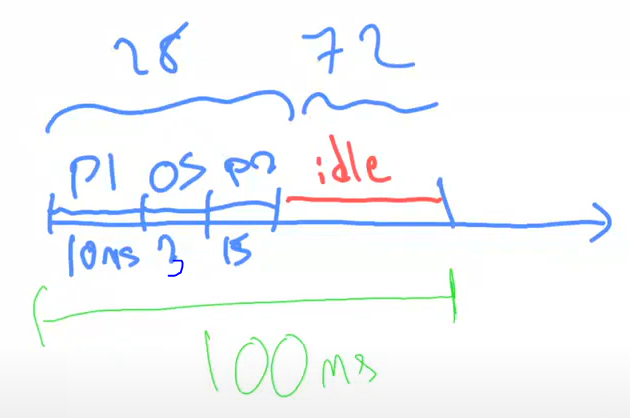 28 72
P1 OS P2 idle
10ms 3 15
100ms